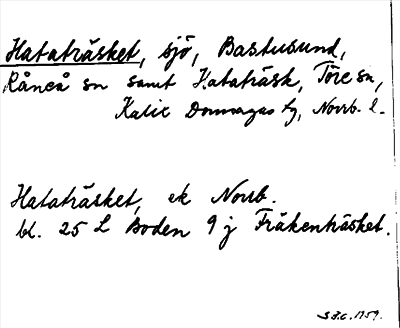 Hataträsket, sjö, Bastusund,
Råneå sn samt Hataträsk, Töre sn,
Kalix Domsagas tg, Norrb. l.
Hataträsket, ek Norrb.
bl. 25 L Boden 9 j Fräkenträsket.
S.F.C. 1959.